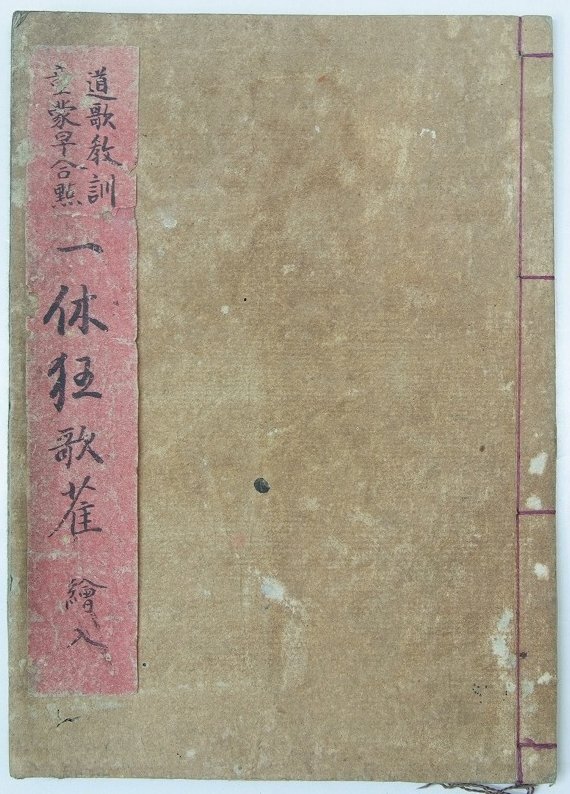 道歌教訓
童蒙早合點
一休狂歌雀 繪入